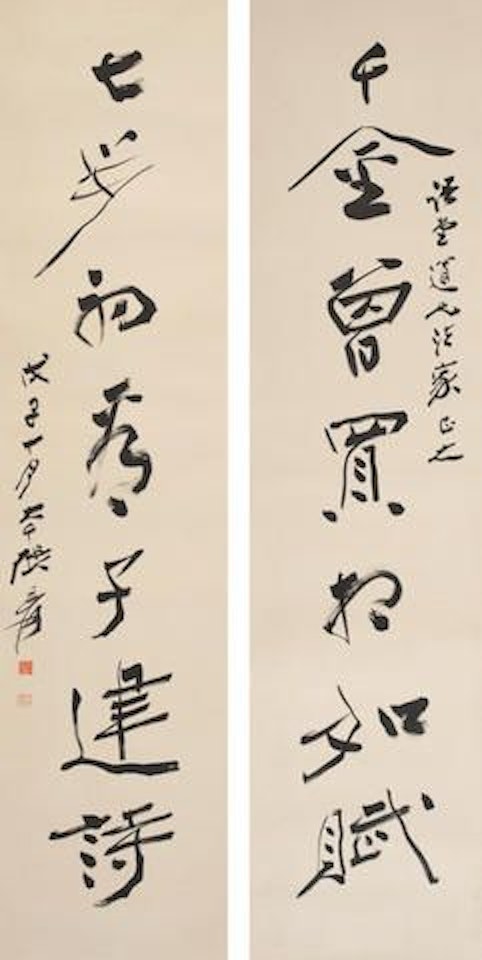 語堂道兄法家正之
千金曾買相如賦
七步初子建詩
戊子十月大千張爰